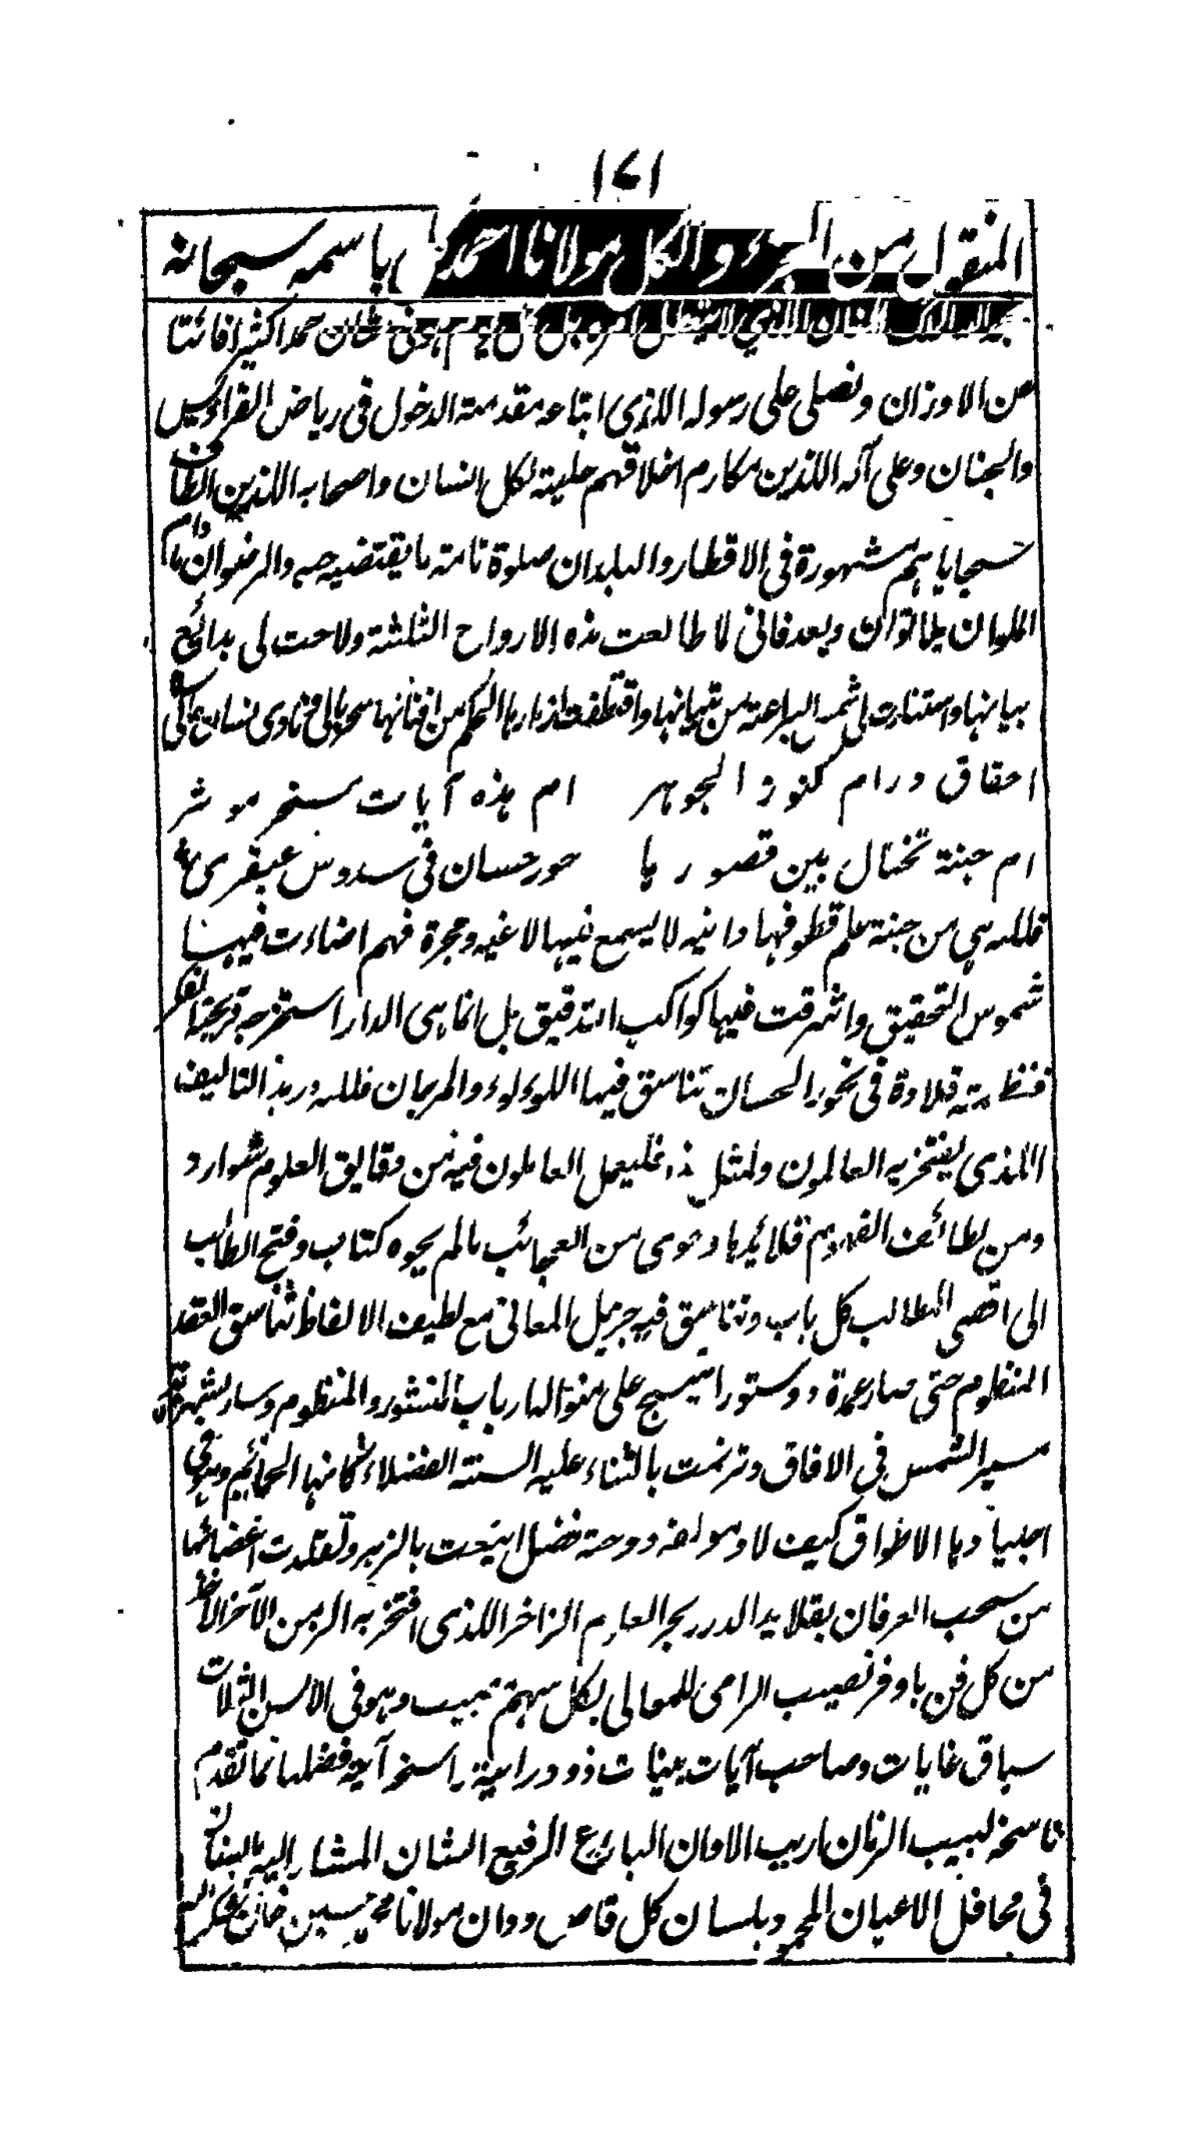 ۱۷۱
المنقول من الجزء والكل مولانا احمد باسمه سبحانه
الذي لا هو في شان حمدا كثيرا فائتا
عن الاوزان ونصلى على رسوله اللذى ابتاعه مقدمته الدخول فى رياض الفراديس
والجنان وعلى آله اللذين مكارم اخلاقهم حلية لكل انسان واصحابه اللذين
سجاياهم مشهورة فى الاقطار والبلدان صلوة تامة ما يقتضيه حبه والرضوان ما دام
الملوان وبعد فانى لما طالعت هذه الارواح الثلثة ولاحت لى بدائع
بيانها واستنارت لى شمس البراعة من تبيانها واقتطفت ازهارها الحكم من افنانها
احقاق در ام كنوز الجوهر ام هذه آيات سحر موثر
ام جنة تختال بين قصورها حور حسان فى سدوس عبقرى
فلله هى من جنة علم قطوفها دانيه لا يسمع فيها لاغيه ومجرة فهم اضاءت فيها
شموس التحقيق واشرقت فيها كواكب التدقيق بل انما هى الدار استخرجه قريحة الفكر
قلادة فى نحور الحسان تناسق فيها اللوءلوء والمرجان فلله در هذا التاليف
اللذى يفتخر به العالمون ولمثل هذا فليعمل العاملون فيه من دقايق العلوم شوارد
ومن لطائف الفهوم قلائدها وحوى من العجائب مالم يحوه كتاب وفتح الطالب
الى اقصى المطالب كل باب وتناسق فيه جزيل المعانى مع لطيف الالفاظ تناسق العقد
المنظوم حتى صار عمدة ودستورا ينسج على منواله ارباب المنثور والمنظوم وسار
سير الشمس فى الافاق وترنمت بالثناء عليه السنة الفضلاء كانها الحمائم وهى
اجيادها الاطواق كيف لا وهو لفه دوحة فضل اينعت بالزهر وتقلدت اغصانها
من سحب العرفان بقلايد الدرر بحر العلوم الزاخر اللذى افتخر به الزمن الآخر
من كل فن باوفر نصيب الرامى للمعالى بكل سهم مصيب وهو فى الالسن الثلاث
سباق غايات وصاحب آيات بينات ذو دراية راسخ آية فضلها لما تقدم
ناسخ لبيب الزمان اريب الاوان البارع الرفيع الشان المشار اليه بالبنان
فى محافل الاعيان المحمود بلسان كل قاص ودان مولانا محمد حسين خان